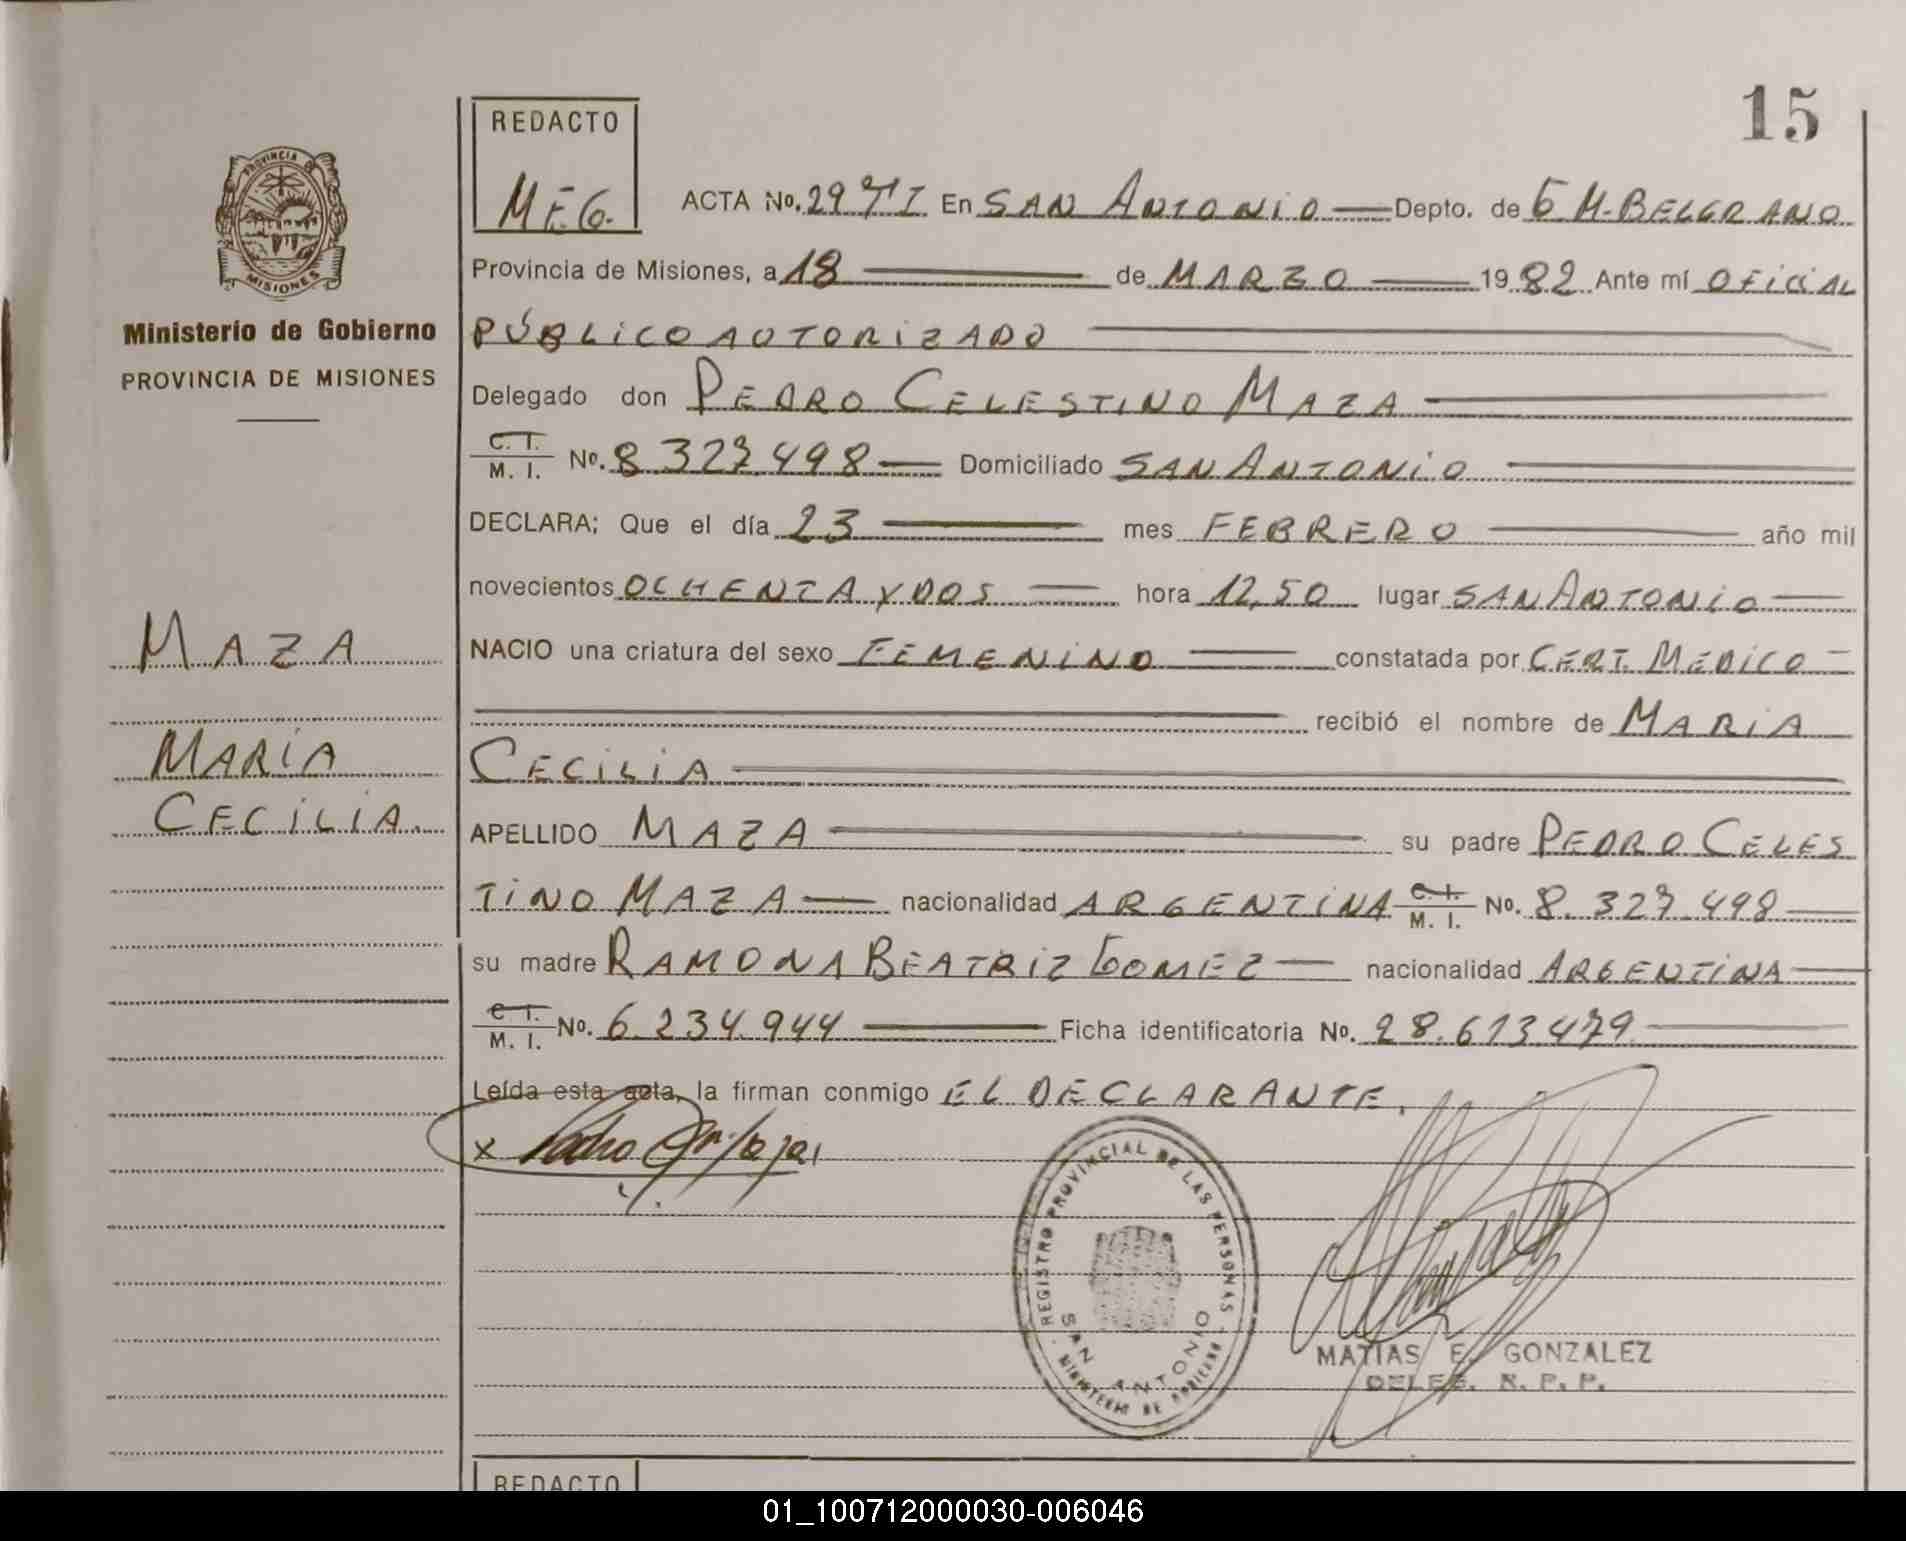 15
REDACTO
M.E.G.
PROVINCIA DE
MISIONES
Ministerio de Gobierno
PROVINCIA DE MISIONES
MAZA
MARÍA
CECILIA.
ACTA No. 29 En SAN ANTONIO — Depto. de G M. BELGRANO
Provincia de Misiones, a 18 — de MARZO — 1982 Ante mí OFICIAL
PÚBLICO AUTORIZADO —
Delegado don PEDRO CELESTINO MAZA —
C. I. M. I. No. 8.327.498 — Domiciliado SAN ANTONIO —
DECLARA; Que el día 23 — mes FEBRERO — año mil
novecientos OCHENTA Y DOS — hora 12,50 lugar SAN ANTONIO —
NACIO una criatura del sexo FEMENINO — constatada por CERT. MEDICO —
— recibió el nombre de MARIA
CECILIA —
APELLIDO MAZA — su padre PEDRO CELES
TINO MAZA — nacionalidad ARGENTINA C. I. M. I. No. 8.327.498 —
su madre RAMONA BEATRIZ GOMEZ — nacionalidad ARGENTINA —
C. I. M. I. No. 6.234.944 — Ficha identificatoria No. 28.613.479 —
Leída esta acta, la firman conmigo EL DECLARANTE.
x
REGISTRO PROVINCIAL DE LAS PERSONAS
SAN ANTONIO
MINISTERIO DE GOBIERNO
MATIAS E. GONZALEZ
DELEG. R. P. P.
REDACTO
01_100712000030-006046